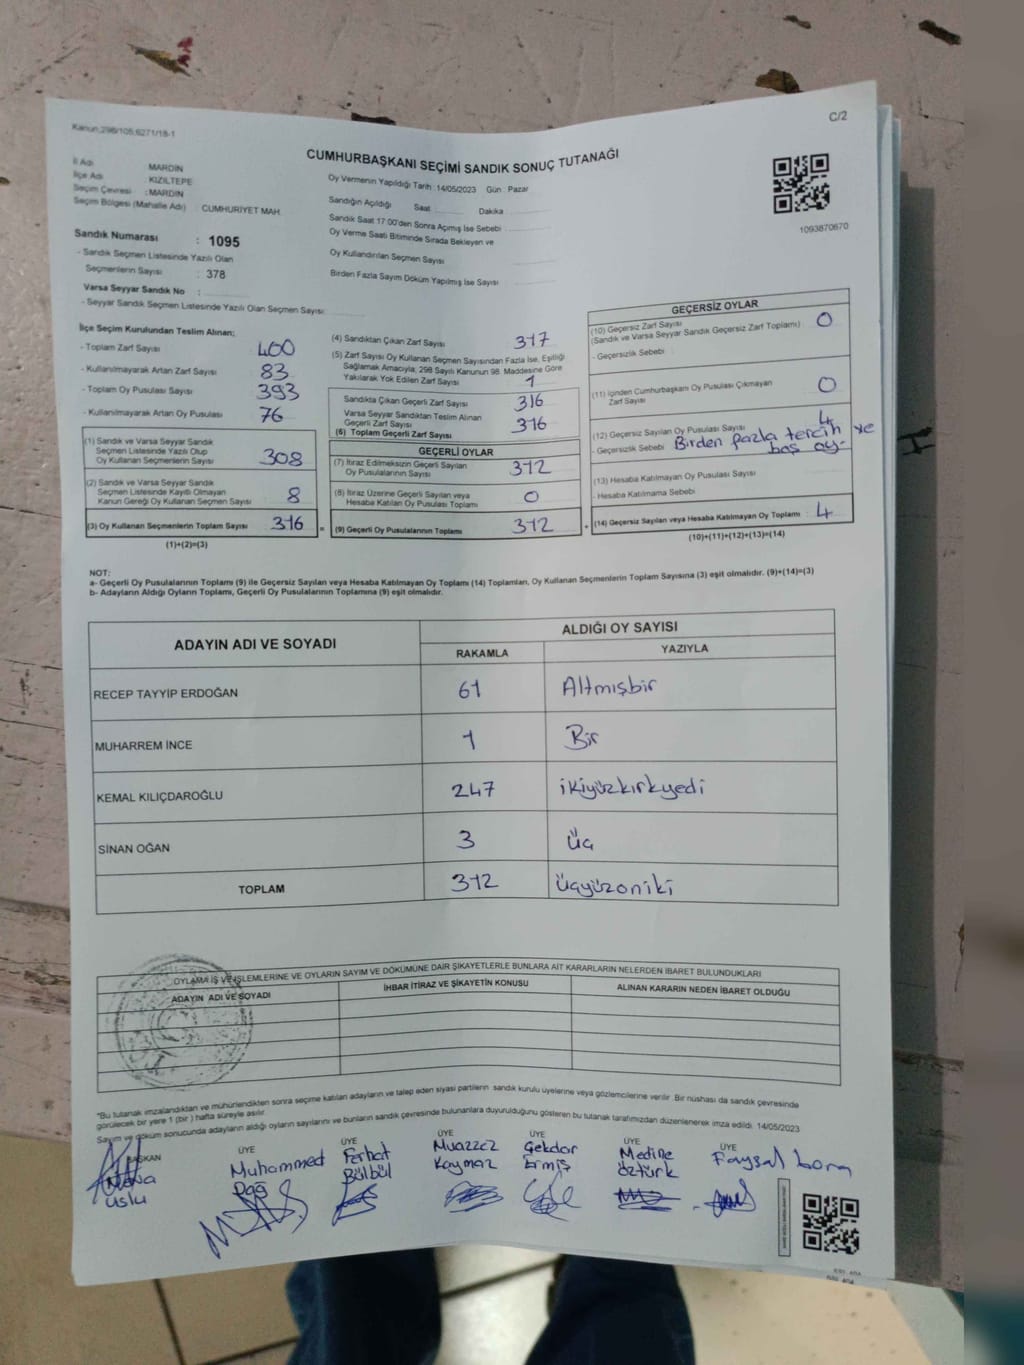 Kanun;298/105;6271/18-1
C/2
CUMHURBAŞKANI SEÇİMİ SANDIK SONUÇ TUTANAĞI
İl Adı MARDİN
İlçe Adı KIZILTEPE
Seçim Çevresi : MARDİN
Seçim Bölgesi (Mahalle Adı) : CUMHURİYET MAH.
Oy Vermenin Yapıldığı Tarih :14/05/2023 Gün : Pazar
Sandığın Açıldığı Saat Dakika
Sandık Saat 17:00'den Sonra Açımış İse Sebebi
Oy Verme Saati Bitiminde Sırada Bekleyen ve
Oy Kullandırılan Seçmen Sayısı
Birden Fazla Sayım Döküm Yapılmış İse Sayısı
1093870670
Sandık Numarası : 1095
- Sandık Seçmen Listesinde Yazılı Olan
Seçmenlerin Sayısı : 378
Varsa Seyyar Sandık No :
- Seyyar Sandık Seçmen Listesinde Yazılı Olan Seçmen Sayısı:
İlçe Seçim Kurulundan Teslim Alınan;
- Toplam Zarf Sayısı 400
- Kullanılmayarak Artan Zarf Sayısı 83
- Toplam Oy Pusulası Sayısı 393
- Kullanılmayarak Artan Oy Pusulası 76
(1) Sandık ve Varsa Seyyar Sandık
Seçmen Listesinde Yazılı Olup
Oy Kullanan Seçmenlerin Sayısı 308
(2) Sandık ve Varsa Seyyar Sandık
Seçmen Listesinde Kayıtlı Olmayan
Kanun Gereği Oy Kullanan Seçmen Sayısı 8
(3) Oy Kullanan Seçmenlerin Toplam Sayısı 316 =
(1)+(2)=(3)
(4) Sandıktan Çıkan Zarf Sayısı 317
(5) Zarf Sayısı Oy Kullanan Seçmen Sayısından Fazla İse, Eşitliği
Sağlamak Amacıyla; 298 Sayılı Kanunun 98. Maddesine Göre
Yakılarak Yok Edilen Zarf Sayısı 1
Sandıkta Çıkan Geçerli Zarf Sayısı 316
Varsa Seyyar Sandıktan Teslim Alınan
Geçerli Zarf Sayısı
(6) Toplam Geçerli Zarf Sayısı 316
GEÇERLİ OYLAR
(7) İtiraz Edilmeksizin Geçerli Sayılan
Oy Pusulalarının Sayısı 312
(8) İtiraz Üzerine Geçerli Sayılan veya
Hesaba Katılan Oy Pusulası Toplamı 0
(9) Geçerli Oy Pusulalarının Toplamı 312 +
GEÇERSİZ OYLAR
(10) Geçersiz Zarf Sayısı 0
(Sandık ve Varsa Seyyar Sandık Geçersiz Zarf Toplamı)
- Geçersizlik Sebebi :
(11) İçinden Cumhurbaşkanı Oy Pusulası Çıkmayan 0
Zarf Sayısı
(12) Geçersiz Sayılan Oy Pusulası Sayısı 4
- Geçersizlik Sebebi Birden fazla tercih ve
boş oy
(13) Hesaba Katılmayan Oy Pusulası Sayısı
- Hesaba Katılmama Sebebi
(14) Geçersiz Sayılan veya Hesaba Katılmayan Oy Toplamı : 4
(10)+(11)+(12)+(13)=(14)
NOT:
a- Geçerli Oy Pusulalarının Toplamı (9) ile Geçersiz Sayılan veya Hesaba Katılmayan Oy Toplamı (14) Toplamları, Oy Kullanan Seçmenlerin Toplam Sayısına (3) eşit olmalıdır. (9)+(14)=(3)
b- Adayların Aldığı Oyların Toplamı, Geçerli Oy Pusulalarının Toplamına (9) eşit olmalıdır.
ADAYIN ADI VE SOYADI ALDIĞI OY SAYISI
RAKAMLA YAZIYLA
RECEP TAYYİP ERDOĞAN 61 Altmışbir
MUHARREM İNCE 1 Bir
KEMAL KILIÇDAROĞLU 247 ikiyüzkırkyedi
SİNAN OĞAN 3 Üç
TOPLAM 312 üçyüzoniki
OYLAMA İŞ VE İŞLEMLERİNE VE OYLARIN SAYIM VE DÖKÜMÜNE DAİR ŞİKAYETLERLE BUNLARA AİT KARARLARIN NELERDEN İBARET BULUNDUKLARI
ADAYIN ADI VE SOYADI İHBAR İTİRAZ VE ŞİKAYETİN KONUSU ALINAN KARARIN NEDEN İBARET OLDUĞU
*Bu tutanak imzalandıktan ve mühürlendikten sonra seçime katılan adayların ve talep eden siyasi partilerin sandık kurulu üyelerine veya gözlemcilerine verilir. Bir nüshası da sandık çevresinde
görülecek bir yere 1 (bir ) hafta süreyle asılır.
Sayım ve döküm sonucunda adayların aldığı oyların sayılarını ve bunların sandık çevresinde bulunanlara duyurulduğunu gösteren bu tutanak tarafımızdan düzenlenerek imza edildi. 14/05/2023
BAŞKAN ÜYE ÜYE ÜYE ÜYE ÜYE ÜYE
Muhammed Ferhat Muazzez Medine Faysal
Uslu Dağ Bülbül Kaymaz Ermiş Öztürk